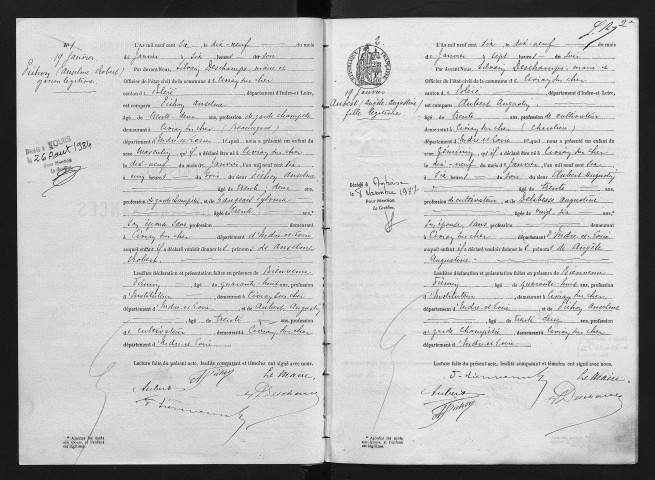 19 Janvier
Pichon (Anselme Robert)
garçon légitime
Décédé à TOURS
le 26 Aout 1984
Pour Mention
Le Greffier
L'An mil neuf cent six, le dix-neuf du mois
de Janvier à six heures du soir
Par devant Nous, Silvain Deschamps, maire et
Officier de l'état civil de la commune de Civray sur Cher
canton de Bléré, département d'Indre-et-Loire,
est comparu Pichon Anselme
âgé de trente deux ans, profession de garde champêtre
demeurant à Civray sur Cher
département d'Indre et Loire, lequel nous a présenté un enfant du
sexe masculin qu'il a déclaré né à Civray sur Cher
le dix-neuf du mois de Janvier, l'an mil neuf cent six
à cinq heures du soir de Pichon Anselme
âgé de trente deux ans,
profession de garde champêtre et de
âgée de trente ans,
son épouse sans profession
demeurant à
Civray sur Cher département d'Indre et Loire
auquel enfant il a déclaré vouloir donner le prénom de Anselme
Robert
Lesdites déclaration et présentation faites en présence de Bienvenu
âgé de quarante huit ans, profession
d'Instituteur demeurant à Civray sur Cher
département d'Indre et Loire, et de Aubert Augustin
âgé de trente ans, profession
de cultivateur demeurant à Civray sur Cher
département d'Indre et Loire
Lecture faite du présent acte, lesdits comparant et témoins ont signé avec nous.
Pichon
Le Maire,
Aubert
Deschamps
* Ajouter les mots
son épouse, si l'enfant
est légitime.
2
19 Janvier
Aubert Angèle Augustine
fille légitime
Décédée à Amboise
le 8 Novembre 1977
Pour Mention
Le Greffier,
L'An mil neuf cent six, le dix-neuf du mois
de Janvier à sept heures du soir
Par devant Nous, Silvain Deschamps, maire et
Officier de l'état civil de la commune de Civray sur Cher
canton de Bléré, département d'Indre-et-Loire,
est comparu Aubert Augustin
âgé de trente ans, profession de cultivateur
demeurant à Civray sur Cher
département d'Indre et Loire, lequel nous a présenté un enfant du
sexe féminin qu'il a déclaré né à Civray sur Cher
le dix-neuf du mois de Janvier, l'an mil neuf cent six
à six heures du soir de Aubert Augustin
âgé de trente ans,
profession de cultivateur et de Augustine
âgée de vingt six ans,
son épouse sans profession
demeurant à
Civray sur Cher département d'Indre et Loire
auquel enfant il a déclaré vouloir donner le prénom de Angèle
Augustine
Lesdites déclaration et présentation faites en présence de Bienvenu
âgé de quarante huit ans, profession
d'Instituteur demeurant à Civray sur Cher
département d'Indre et Loire et de Pichon Anselme
âgé de trente deux ans, profession
de garde champêtre demeurant à Civray sur Cher
département d'Indre et Loire
Lecture faite du présent acte, lesdits comparant et témoins ont signé avec nous.
Le Maire,
Aubert
Pichon
Deschamps
* Ajouter les mots
son épouse, si l'enfant
est légitime.